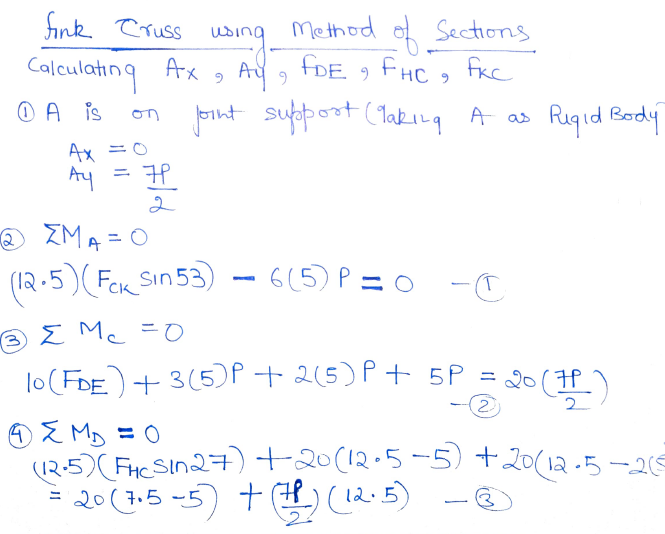 fink Truss using Method of Sections
Calculating Ax, Ay, FDE, FHC, FKC
① A is on joint support (Taking A as Rigid Body
Ax = 0
Ay = 7P/2
② ΣMA = 0
(12.5)(FCK sin53) - 6(5)P = 0 - ①
③ Σ Mc = 0
10(FDE) + 3(5)P + 2(5)P + 5P = 20(7P/2)
- ②
④ Σ MD = 0
(12.5)(FHC sin27) + 20(12.5-5) + 20(12.5-2(5
= 20(7.5-5) + (7P/2)(12.5) - ③